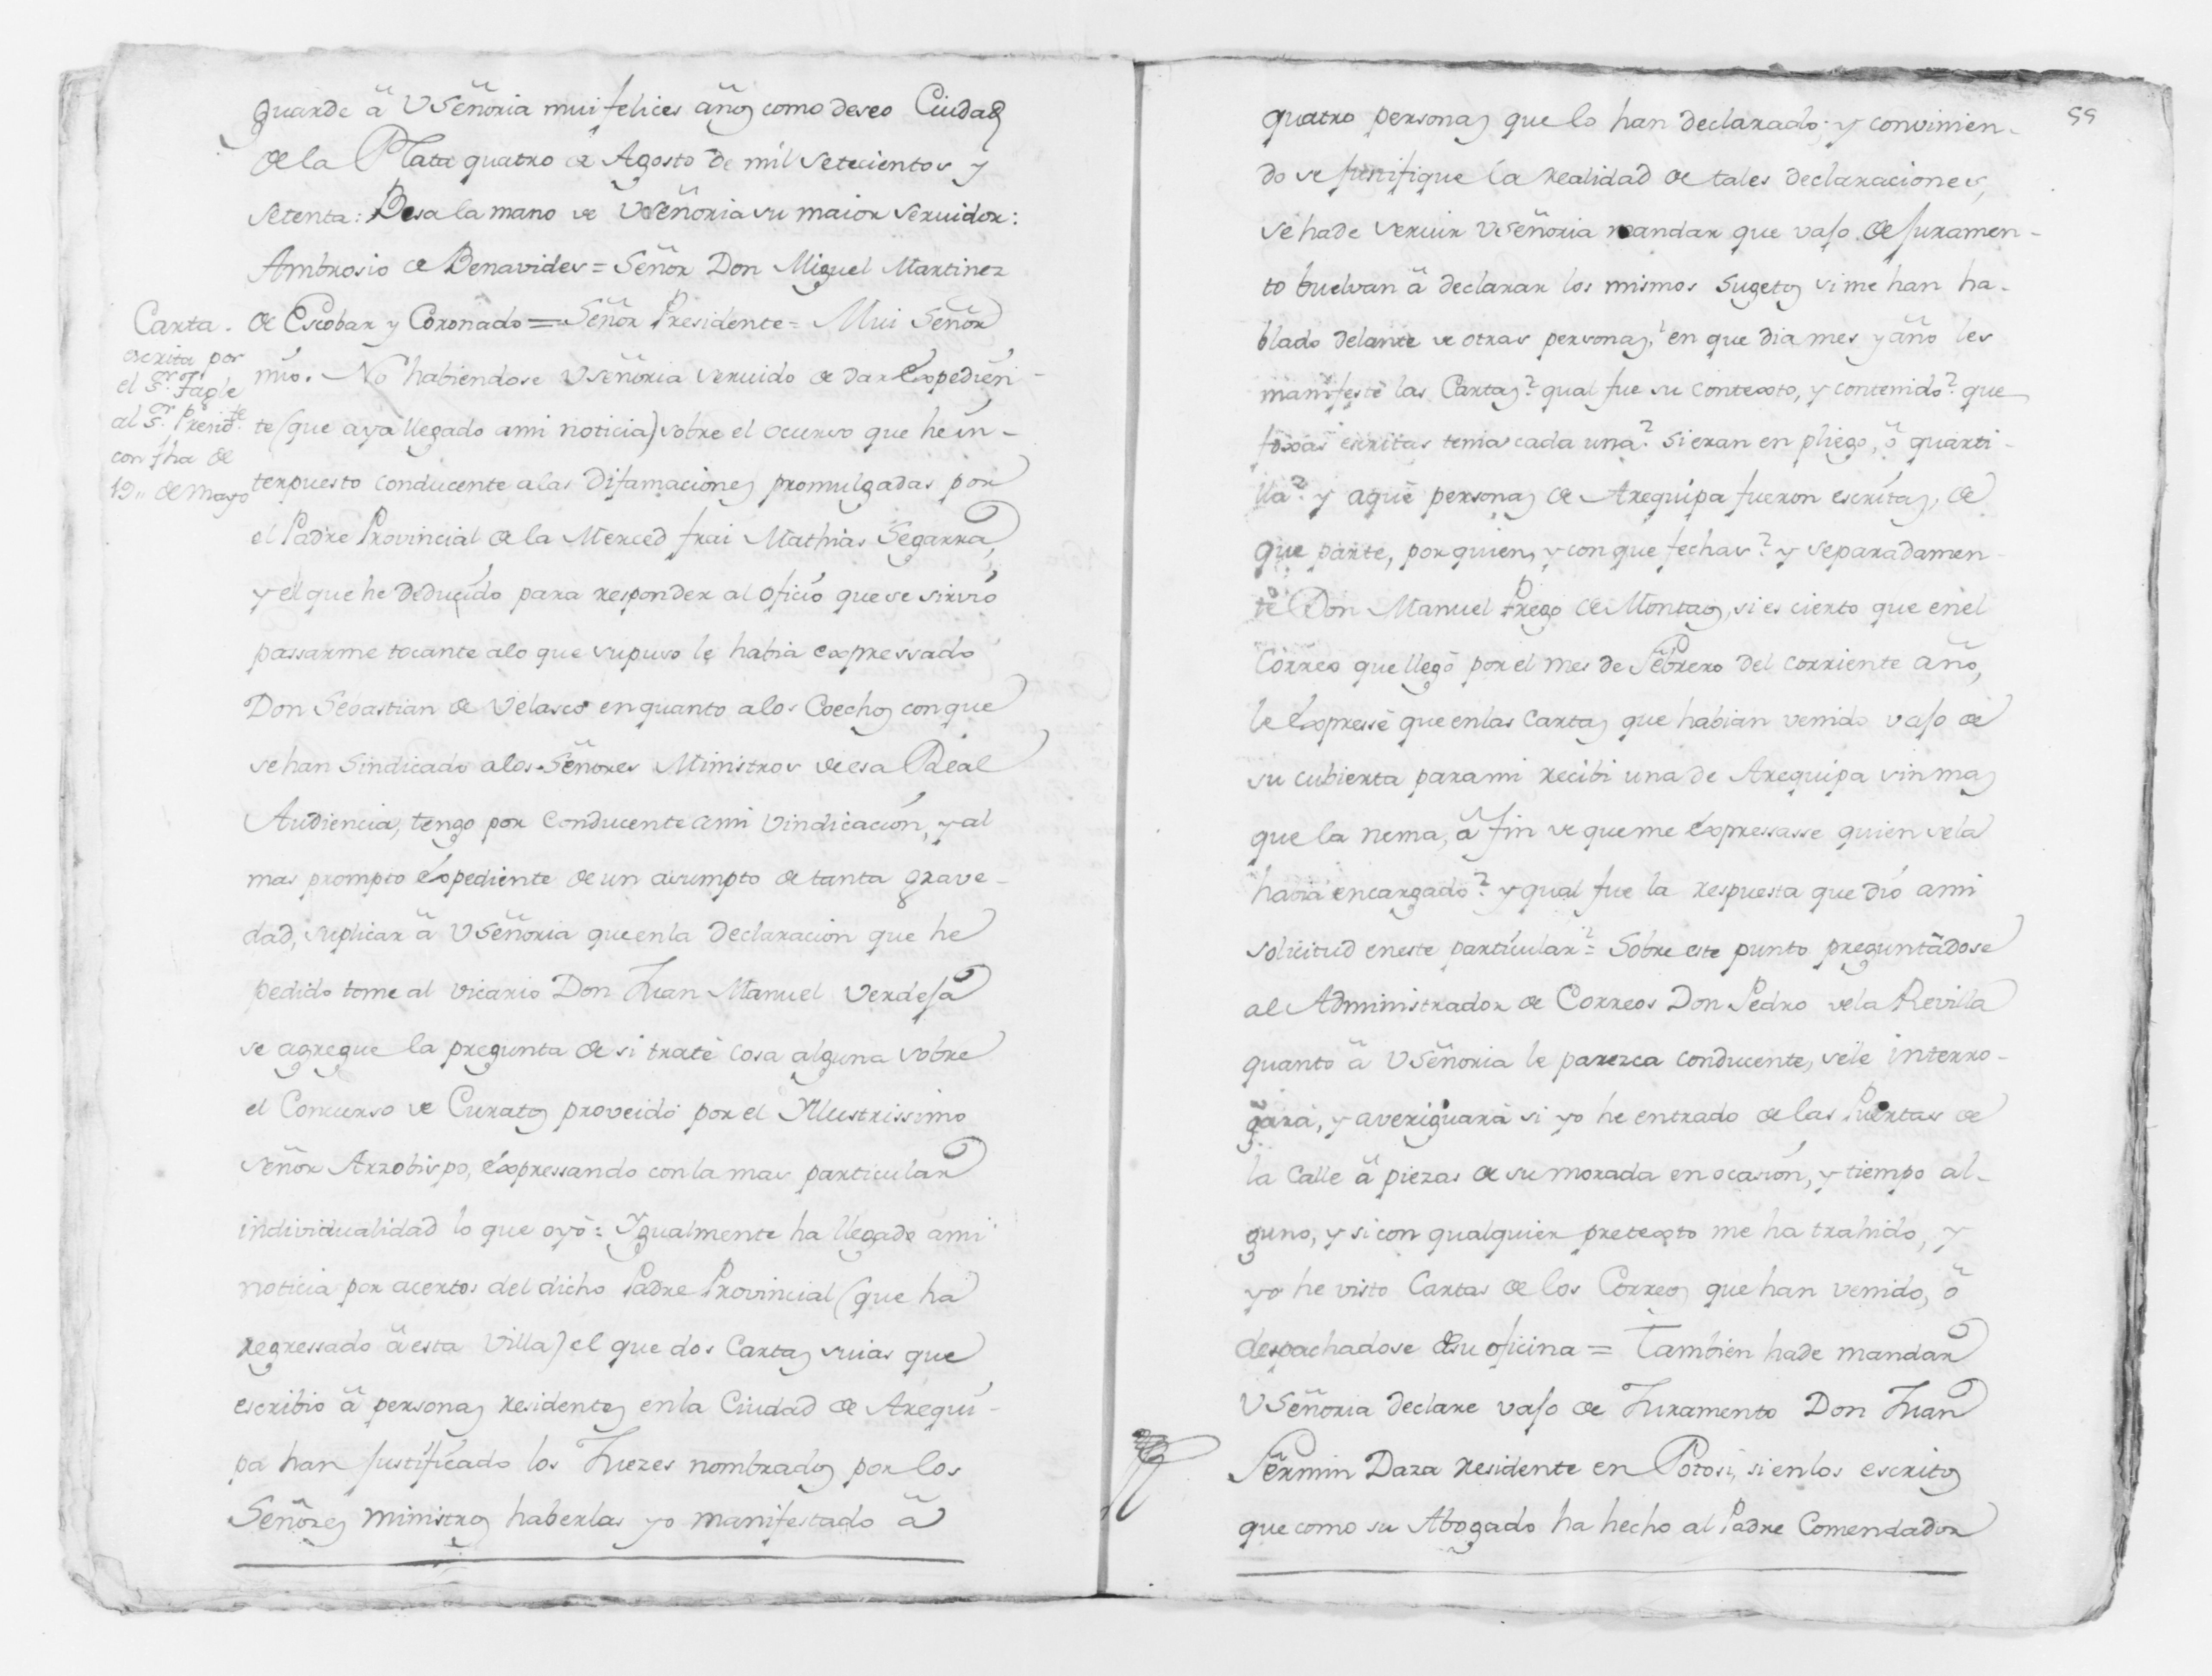 guarde â VSeñoria mui felices años como deseo Ciudad
de la Plata quatro de Agosto de mil setecientos y
setenta: Besa la mano de VSeñoria su maior servidor:
Ambrosio de Benavides = Señor Don Miguel Martinez
de Escobar y Coronado = Señor Presidente = Mui Señor
Carta
escrita por
el Sor. Tagle
al Sor. Presidte.
con fha de
19,, de Mayo
mio. No habiendose VSeñoria servido de dar expedien-
te (que aya llegado ami noticia) sobre el ocurso que hè in-
terpuesto conducente alas difamaciones promulgadas por
el Padre Provincial de la Merced frai Mathias Segarra,
y el que he deducido para responder al oficio que se sirvio
passarme tocante alo que supuso le habia expressado
Don Sebastian de Velasco en quanto a los Coechos con que
se han sindicado a los Señores Ministros de esa Real
Audiencia, tengo por conducente ami vindicacion, y al
mas prompto expediente de un asumpto de tanta grave-
dad, suplicar â VSeñoria que en la declaracion que he
pedido tome al vicario Don Juan Manuel Verdesa
se agregue la pregunta de si tratè cosa alguna sobre
el Concurso de Curatos proveido por el Yllustrissimo
señor Arzobispo, expressando con la mas particular
individualidad lo que oyò: Ygualmente ha llegado ami
noticia por acertos del dicho Padre Provincial (que ha
regressado â esta Villa) el que dos Cartas suias que
escribio â personas residentes en la Ciudad de Arequi-
pa han justificado los Juezes nombrados por los
Señores ministros haberlas yo manifestado â
55
quatro personas que lo han declarado; y convinien-
do se justifique la realidad de tales declaraciones,
se ha de servir VSeñoria mandar que vajo de juramen-
to buelvan â declarar los mismos sugetos si me han ha-
blado delante de otras personas? en que dia mes y año les
manifestè las Cartas? qual fue su contexto, y contenido? que
foxas escritas tenia cada una? si eran en pliego, ô quarti-
lla? y aquè personas de Arequipa fueron escritas, de
que parte, por quien, y con que fechas? y separadamen-
te Don Manuel Prego de Montaos, si es cierto que en el
Correo que llegò por el mes de Febrero del corriente año,
le expressè que en las cartas que habian venido vajo de
su cubierta para mi recibi una de Arequipa sin mas
que la nema, â fin de que me expressasse quien se la
havia encargado? y qual fue la respuesta que diò ami
solicitud en este particular? = Sobre este punto preguntãdose
al Administrador de Correos Don Pedro de la Revilla
quanto â VSeñoria le parezca conducente, se le interro-
garà, y averiguarà si yo he entrado de las Puertas de
la Calle â piezas de su morada en ocasion, y tiempo al-
guno, y si con qualquier pretexto me ha trahido, y
yo he visto Cartas de los Correos que han venido, ô
despachadose de su oficina = Tambien ha de mandar
VSeñoria declare vajo de Juramento Don Juan
Fermin Daza residente en Potosi, si en los escritos
que como su Abogado ha hecho al Padre Comendador